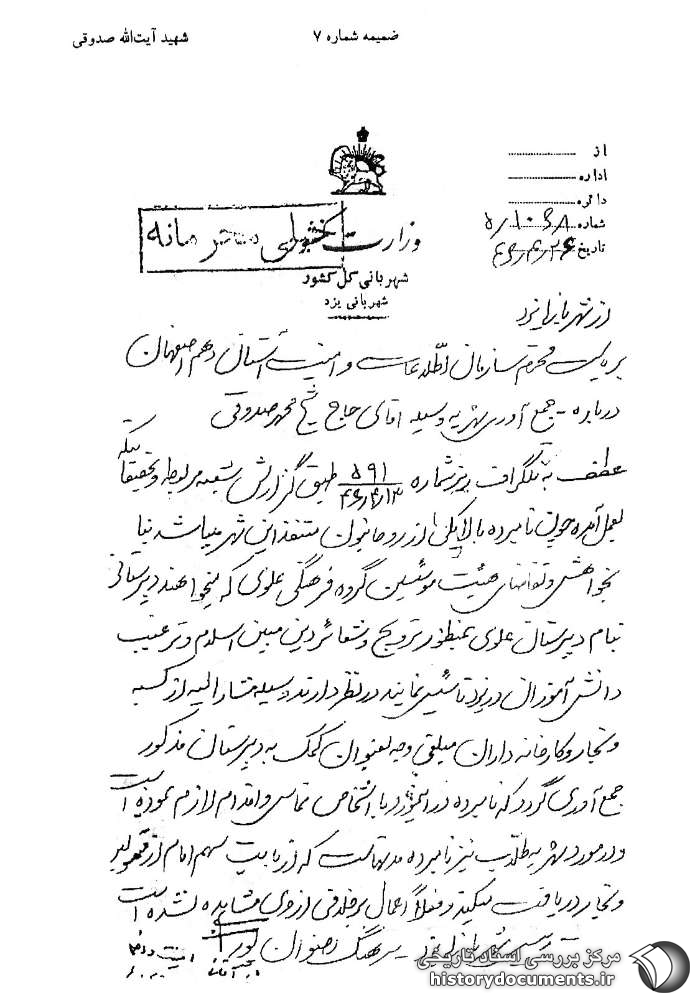 شهید آیت‌الله صدوقی
ضمیمه شماره ۷
از
اداره
دائره
شماره ۵/۱۰۶۸
تاریخ ۴۶/۴/۲۶
وزارت کشور
محرمانه
شهربانی کل کشور
شهربانی یزد
از شهربانی یزد
بریاست محترم سازمان اطلاعات و امنیت استان دهم اصفهان
درباره - جمع آوری شهریه وسیله آقای حاج شیخ محمد صدوقی
عطف به تلگراف رمز شماره ۵۹۱ ۴۶/۴/۱۳ طبق گزارش شعبه مربوطه و تحقیقاتیکه
بعمل آمده چون نامبرده بالا یکی از روحانیون متنفذ این شهر میباشد بنا
بخواهش و تقاضای هیئت موسسین گروه فرهنگی علوی که میخواهند دبیرستانی
بنام دبیرستان علوی بمنظور ترویج و شعائر دین مبین اسلام و ترغیب
دانش آموزان در یزد تاسیس نمایند در نظر دارند وسیله مشارالیه از کسبه
و تجار و کارخانه داران مبلغی وجه بعنوان کمک به دبیرستان مذکور
جمع آوری گردد که نامبرده در این مورد با اشخاص تماس و اقدام لازم نموده است
و در مورد شهریه طلاب نیز نامبرده مدتهاست که از بابت سهم امام از
و تجار دریافت میکند و فعلاً اعمال برخلافی از وی مشاهده نشده است
رئیس شهربانی یزد - سرهنگ
مرکز بررسی اسناد تاریخی
historydocuments.ir